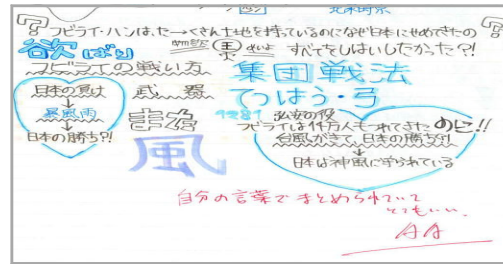 フビライ・ハンは、たーくさん土地を持っているのになぜ日本にせめてきたの
欲ばり
物欲 すべてをしはいしたかった?!
フビライの戦い方 集団戦法
日本の負け 武器 てつはう・弓
↓
暴風雨 まね 1281 弘安の役
↓ フビライは14万人もつれてきたのに!!
日本の勝ち?! 風 台風がきて、日本の勝ち?!
↓
日本は神風に守られている
自分の言葉でまとめられていて
とてもいい。
AA